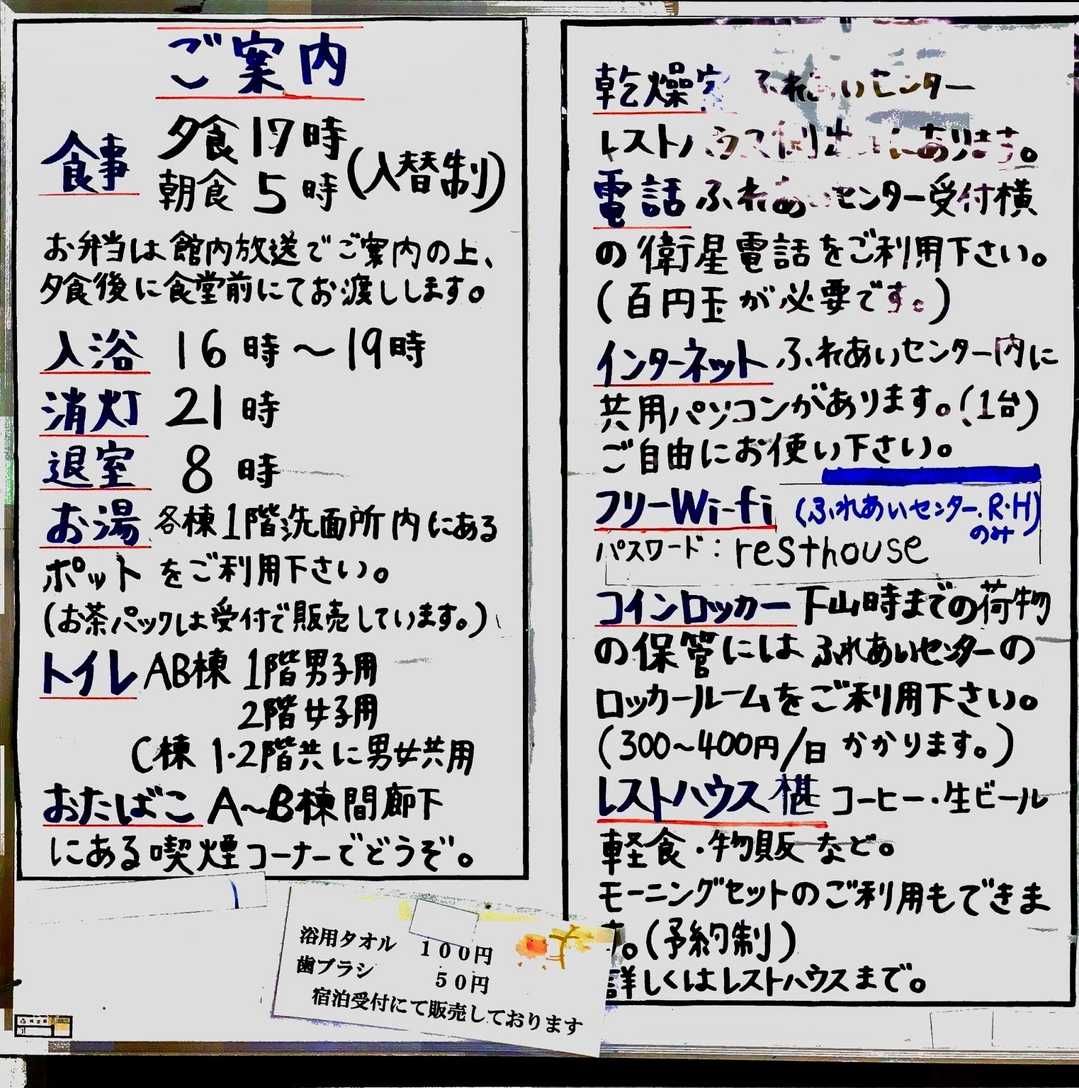 ご案内
食事 夕食17時
朝食5時 (入替制)
お弁当は館内放送でご案内の上、
夕食後に食堂前にてお渡しします。
入浴 16時〜19時
消灯 21時
退室 8時
お湯 各棟1階洗面所内にある
ポットをご利用下さい。
(お茶パックは受付で販売しています。)
トイレ AB棟 1階男子用
2階女子用
C棟 1・2階共に男女共用
おたばこ A〜B棟間廊下
にある喫煙コーナーでどうぞ。
浴用タオル 100円
歯ブラシ 50円
宿泊受付にて販売しております
乾燥室 ふれあいセンター
レストハウス側出口にあります。
電話 ふれあいセンター受付横
の衛星電話をご利用下さい。
(百円玉が必要です。)
インターネット ふれあいセンター内に
共用パソコンがあります。(1台)
ご自由にお使い下さい。
フリーWi-fi (ふれあいセンター、R・H)
のみ
パスワード:resthouse
コインロッカー 下山時までの荷物
の保管にはふれあいセンターの
ロッカールームをご利用下さい。
(300〜400円/日 かかります。)
レストハウス椹 コーヒー・生ビール
軽食・物販など。
モーニングセットのご利用もできま
す。(予約制)
詳しくはレストハウスまで。